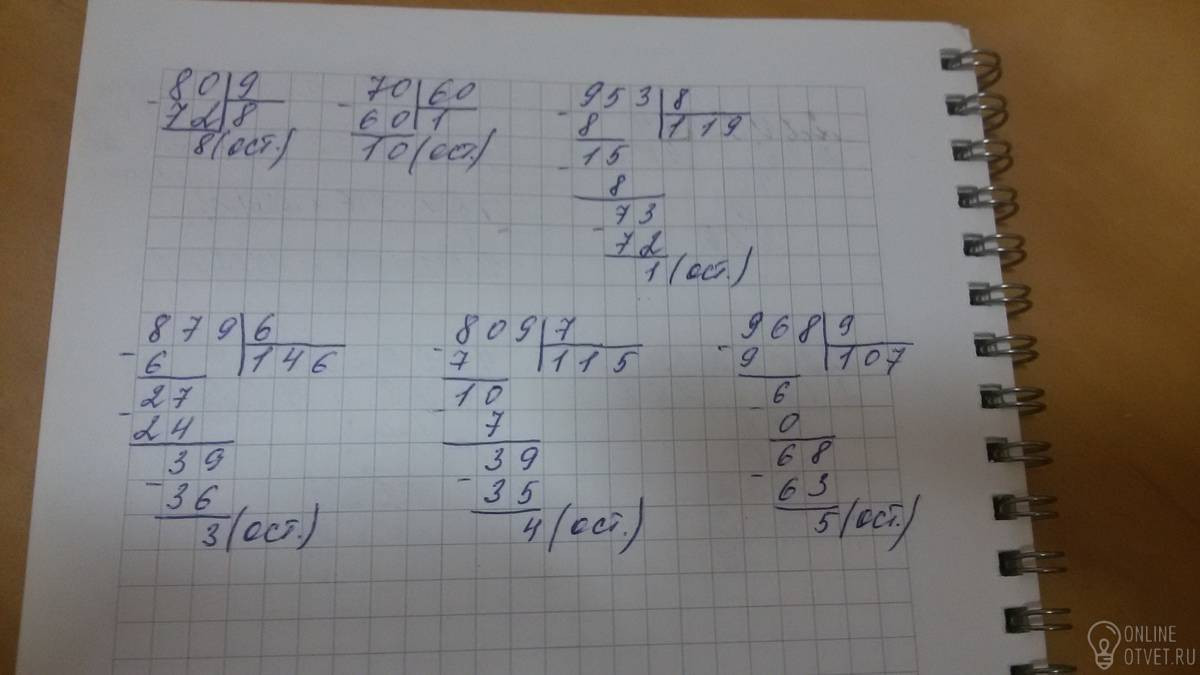 80 9
- 72 8
8 (ост.)
70 60
- 60 1
10 (ост.)
953 8
- 8 119
15
- 8
73
- 72
1 (ост.)
879 6
- 6 146
27
- 24
39
- 36
3 (ост.)
809 7
- 7 115
10
- 7
39
- 35
4 (ост.)
968 9
- 9 107
6
- 0
68
- 63
5 (ост.)
ONLINE
OTVET.RU